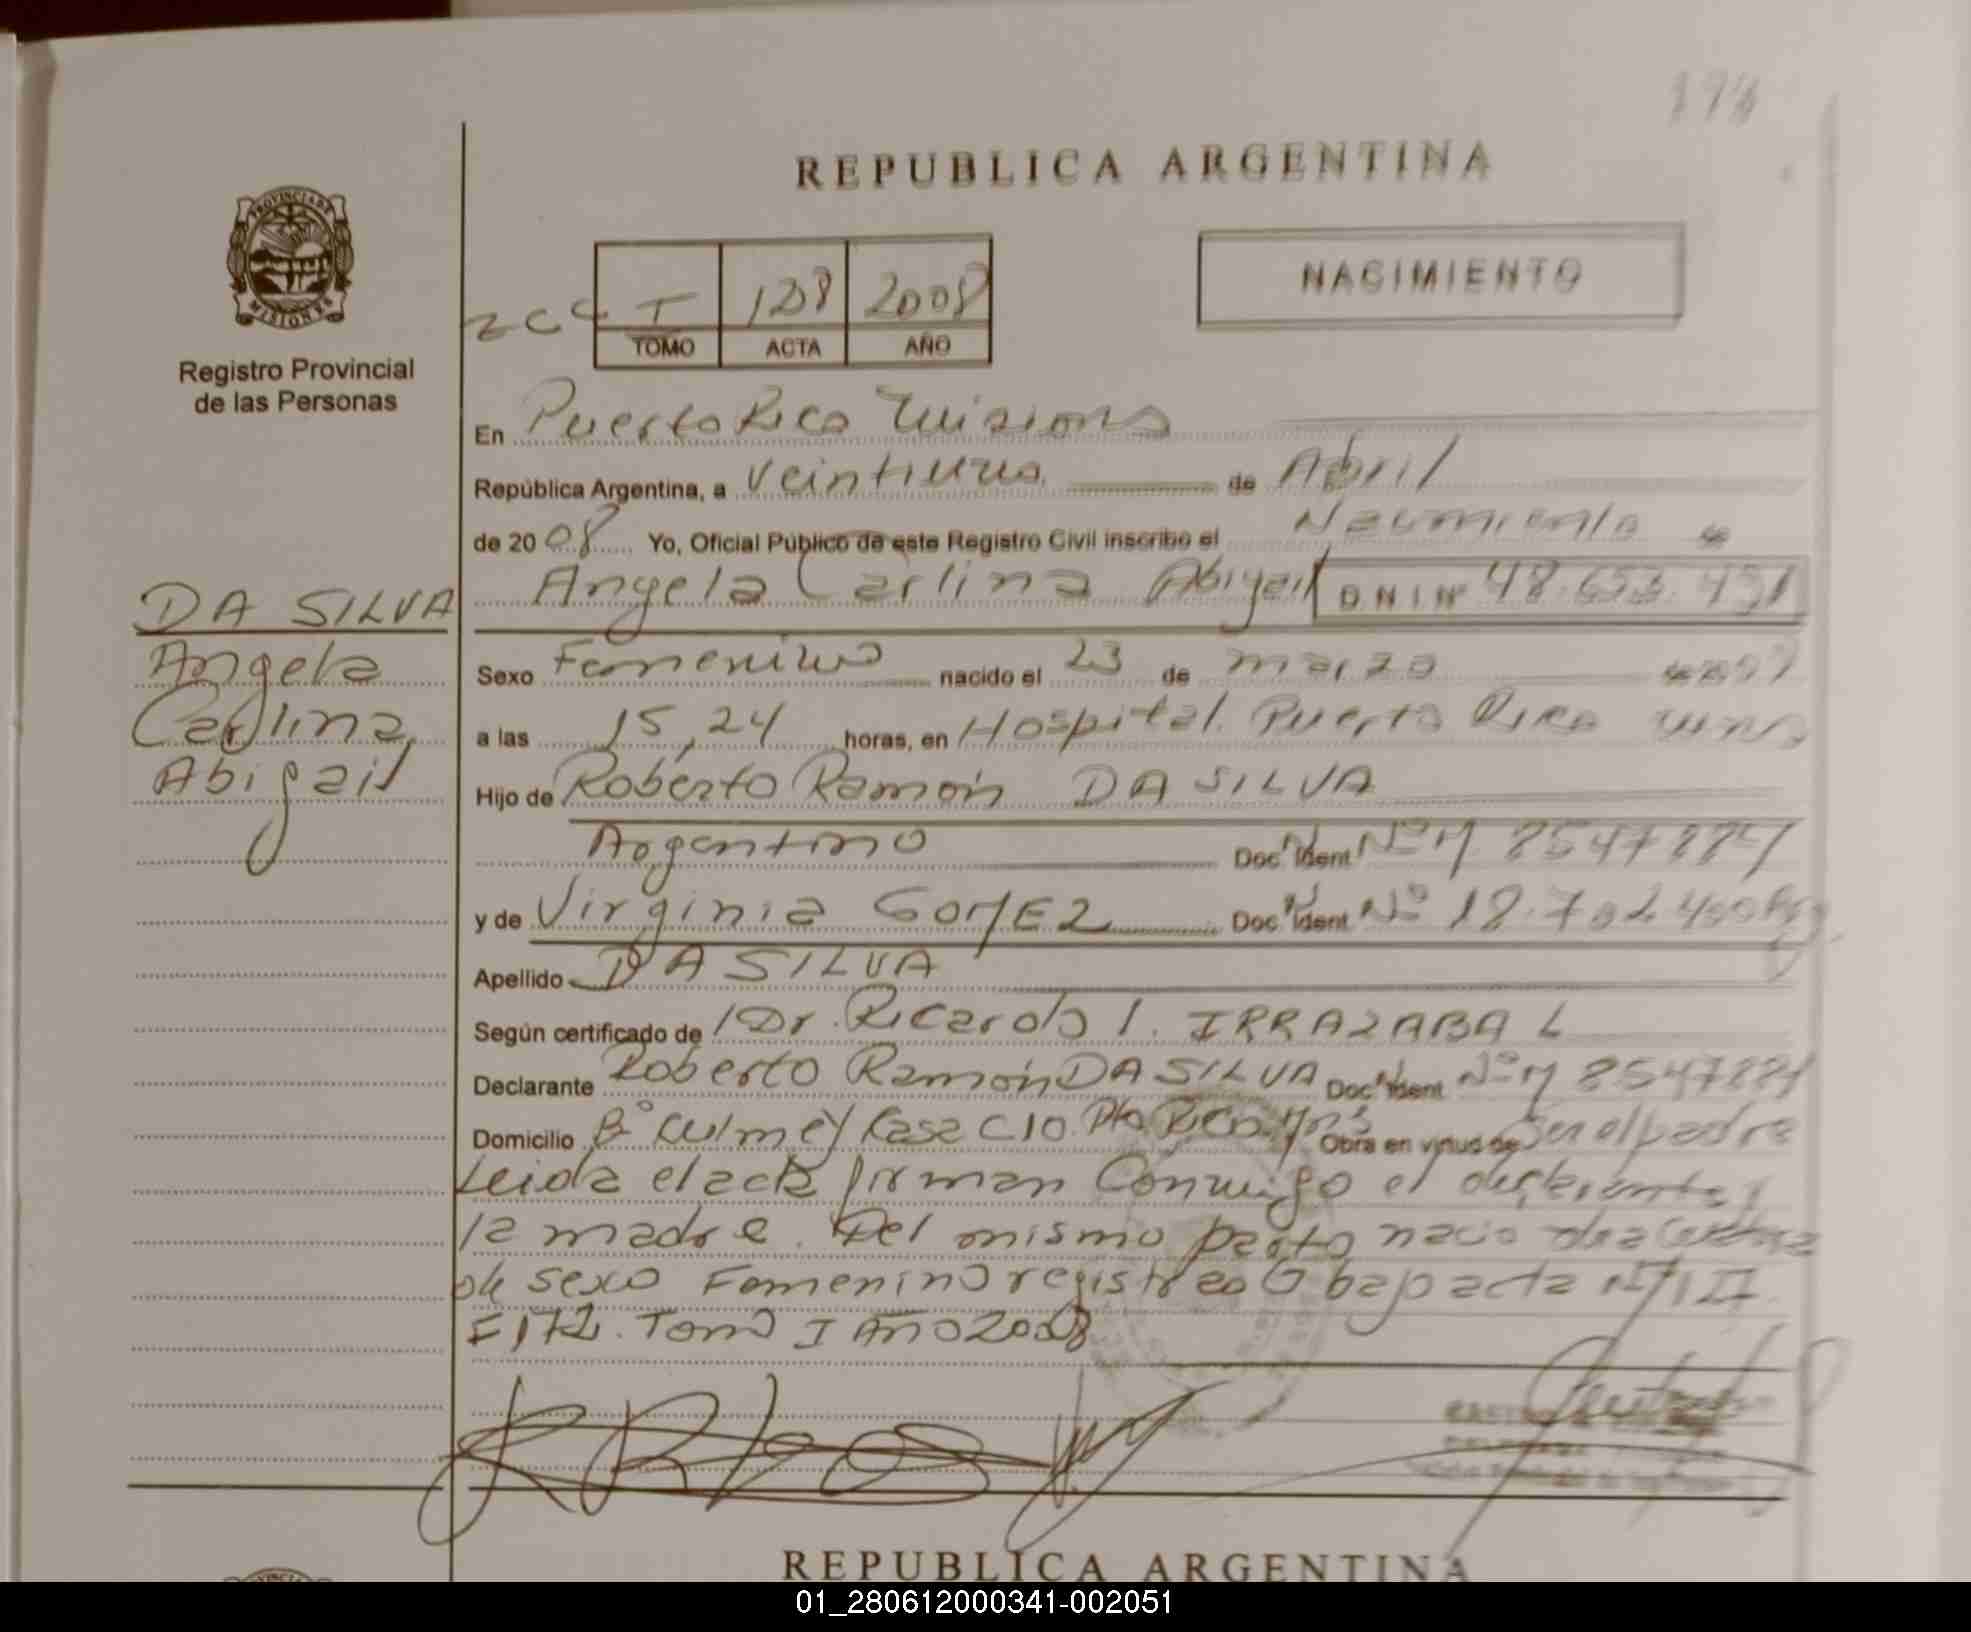 174
REPUBLICA ARGENTINA
PROVINCIA DE
MISIONES
Registro Provincial
de las Personas
NACIMIENTO
I 128 2008
TOMO ACTA AÑO
En Puerto Rico Misiones
República Argentina, a Veintiuno de Abril
de 2008 Yo, Oficial Público de este Registro Civil inscribo el Nacimiento de
Angela Carlina Abigail D N I Nº 48.653.451
DA SILVA
Angela
Carlina
Abigail
Sexo Femenino nacido el 23 de marzo de 2008
a las 15,24 horas, en Hospital Puerto Rico Mnes
Hijo de Roberto Ramón DA SILVA
Argentino Doc Ident Nº M 8547884
y de Virginia GOMEZ Doc Ident Nº 18.702.400
Apellido DA SILVA
Según certificado de Dr. Ricardo I. IRRAZABAL
Declarante Roberto Ramón DA SILVA Doc Ident Nº M 8547884
Domicilio Bº Culmey Casa C10 Pto Rico Mnes Obra en virtud de Ser el padre
Leida el acta firman Conmigo el declarante y
la madre. Del mismo parto nacio otra
de sexo Femenino registrado bajo acta Nº 127
F 172. Tomo I Año 2008
REPUBLICA ARGENTINA
01_280612000341-002051